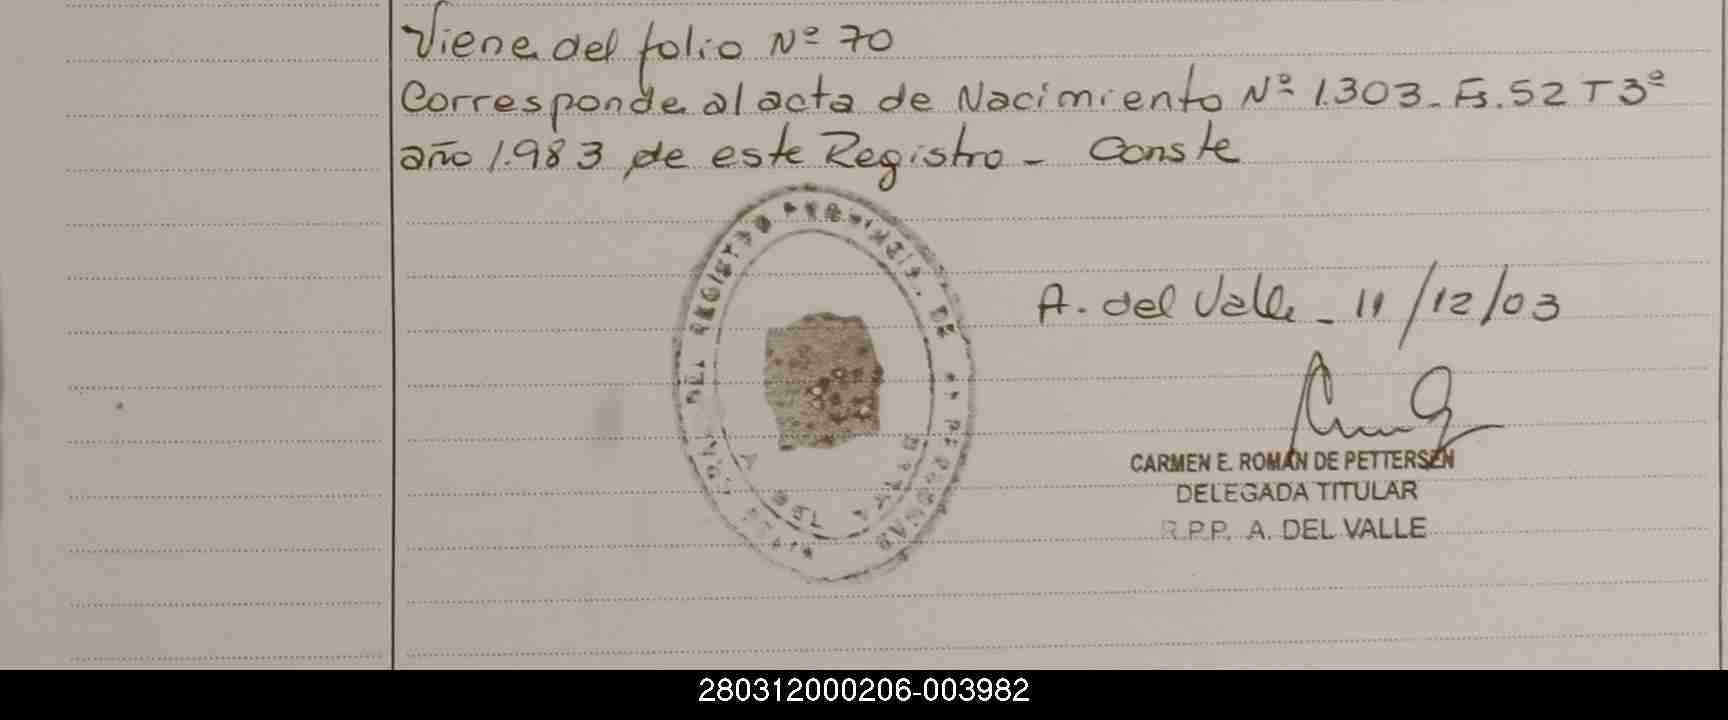 Viene del folio Nº 70
Corresponde al acta de Nacimiento Nº 1.303 - Fs. 52 T 3º
año 1.983 de este Registro - Conste
DEL REGISTRO PROVINCIAL DE
PERSONAS
A. del Valle - 11/12/03
CARMEN E. ROMAN DE PETTERSEN
DELEGADA TITULAR
R.P.P. A. DEL VALLE
280312000206-003982